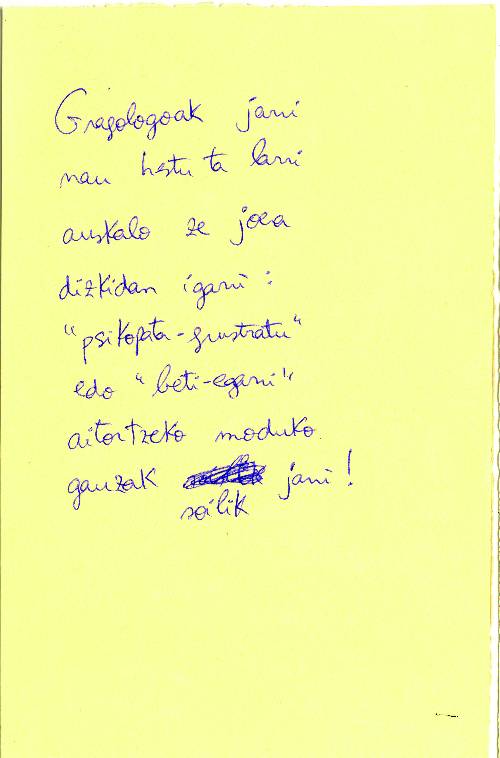 Grafologoak jarri
nau hestu ta larri
auskalo ze joera
dizkidan igarri :
"psikopata-frustratu"
edo "beti-egarri"
aitortzeko moduko
gauzak soilik jarri!